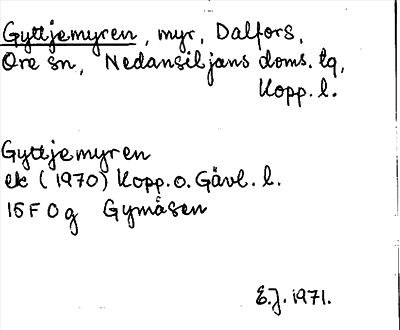 Gyttjemyren, myr, Dalfors,
Ore sn, Nedansiljans doms. tg,
Kopp. l.
Gyttjemyren
ek (1970) Kopp. o. Gävl. l.
15F 0g Gymåsen
E.J. 1971.